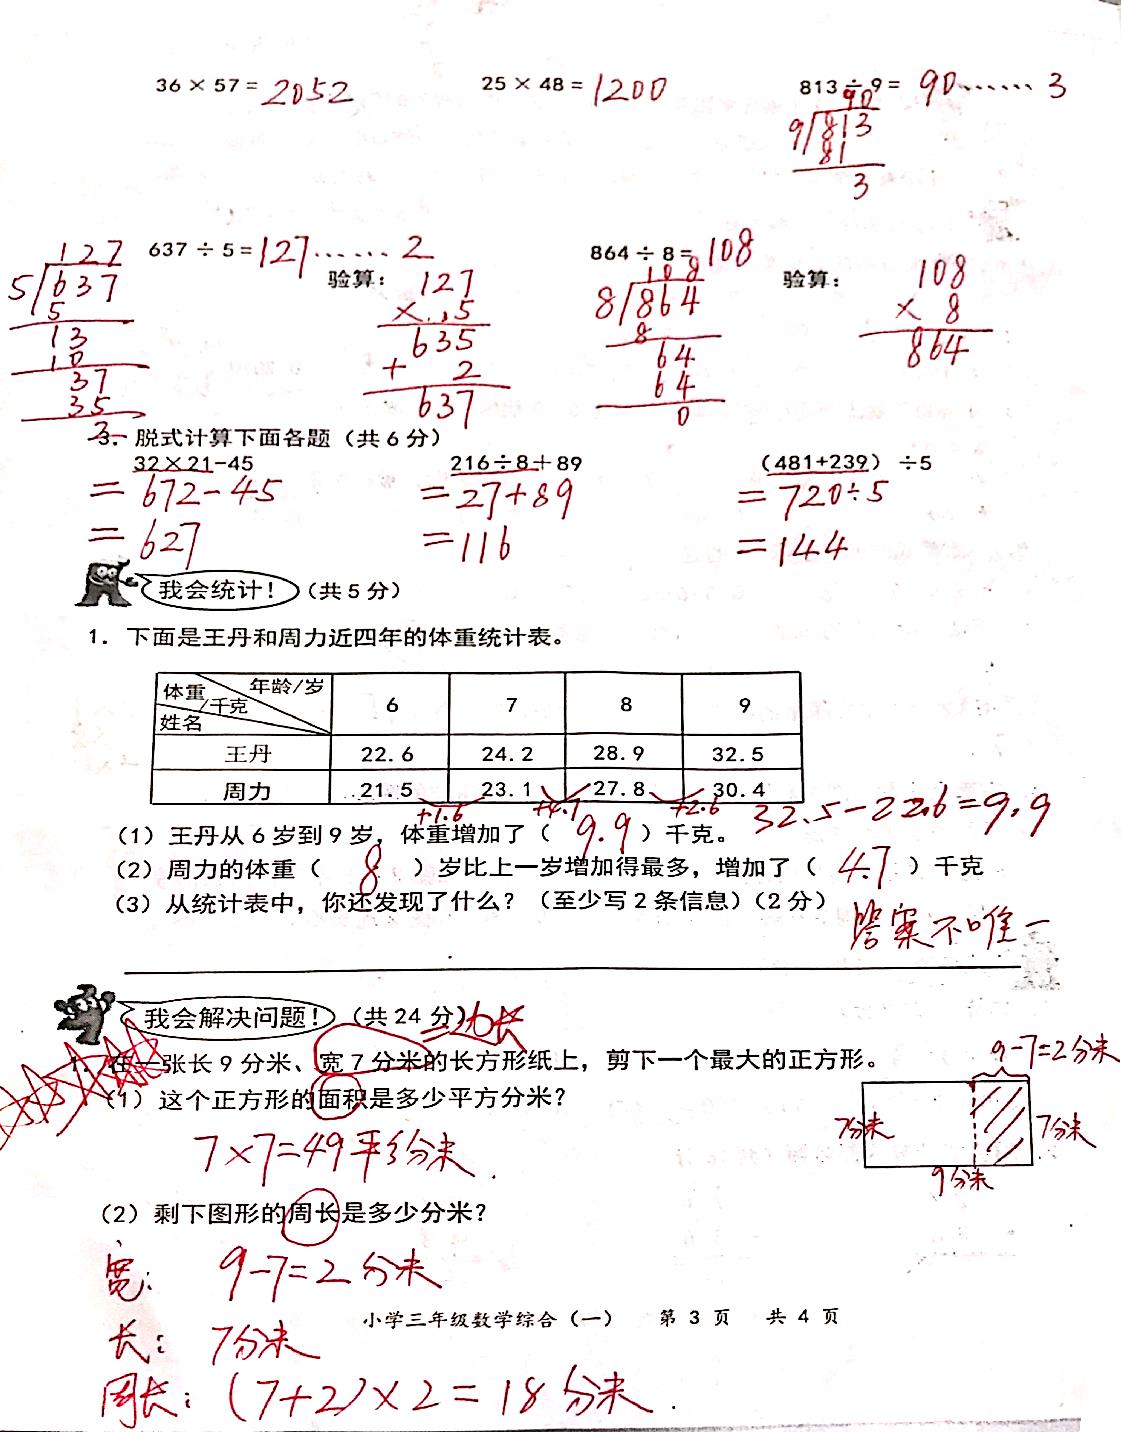 36 × 57 = 2052 25 × 48 = 1200 813 ÷ 9 = 90…… 3
90
9 813
81
3
637 ÷ 5 = 127…… 2 864 ÷ 8 = 108
127
5 637
5
13
10
37
35
2
验算：
127
× 5
635
+ 2
637
108
8 864
8
64
64
0
验算：
108
× 8
864
3. 脱式计算下面各题（共 6 分）
32×21-45 216÷8+89 （481+239） ÷5
= 672-45 = 27+89 = 720÷5
= 627 = 116 = 144
我会统计！（共 5 分）
1. 下面是王丹和周力近四年的体重统计表。
体重/千克 年龄/岁 姓名 6 7 8 9
王丹 22.6 24.2 28.9 32.5
周力 21.5 23.1 27.8 30.4
+1.6 +4.7 +2.6
32.5-22.6=9.9
（1）王丹从 6 岁到 9 岁，体重增加了（ 9.9 ）千克。
（2）周力的体重（ 8 ）岁比上一岁增加得最多，增加了（ 4.7 ）千克
（3）从统计表中，你还发现了什么？（至少写 2 条信息）（2 分）
答案不唯一
我会解决问题！（共 24 分）
=边长
1. 在一张长 9 分米、宽 7 分米的长方形纸上，剪下一个最大的正方形。
9-7=2分米
（1）这个正方形的面积是多少平方分米？
7分米 7分米
9分米
7×7=49平方分米
（2）剩下图形的周长是多少分米？
宽： 9-7=2分米
小学三年级数学综合（一） 第 3 页 共 4 页
长： 7分米
周长：（7+2）×2=18分米.